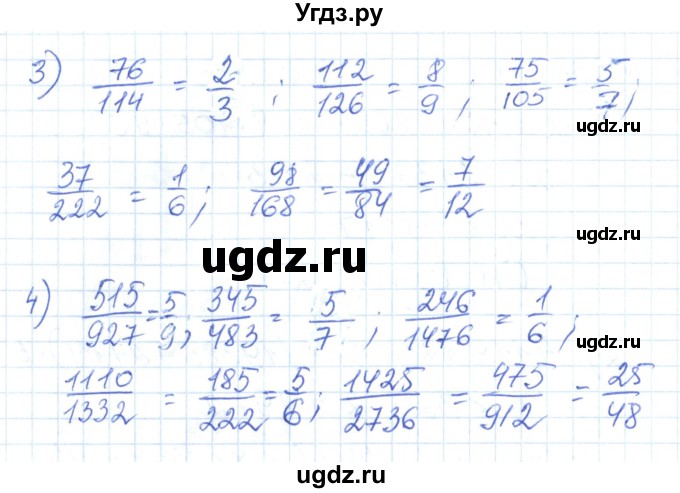 Угдз.ру
3) 76/114 = 2/3 ; 112/126 = 8/9 ; 75/105 = 5/7 ;
ugdz.ru
37/222 = 1/6 ; 98/168 = 49/84 = 7/12
ugdz.ru
ugdz.ru
4) 515/927 = 5/9 ; 345/483 = 5/7 ; 246/1476 = 1/6 ;
ugdz.ru
1110/1332 = 185/222 = 5/6 ; 1425/2736 = 475/912 = 25/48
ugdz.ru
ugdz.ru